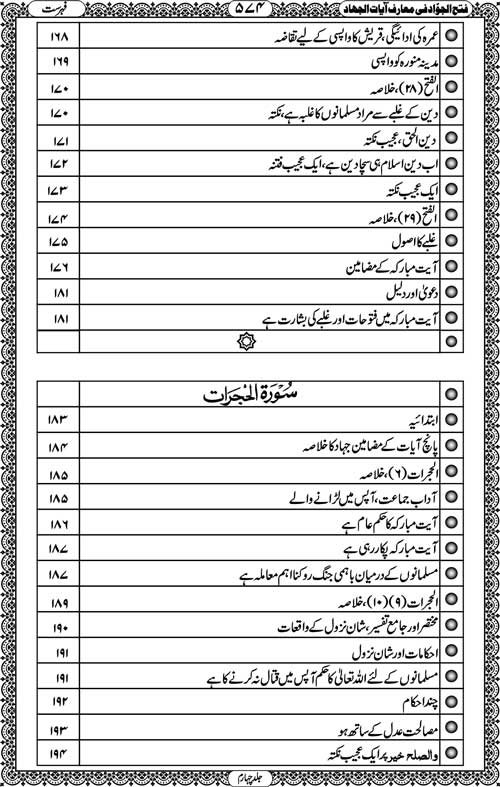 فتح الجوّاد فی معارف آیات الجهاد ۵۷۴ فہرست
عمرہ کی ادائیگی، قریش کا واپسی کے لیے تقاضہ ۱۶۸
مدینہ منورہ کو واپسی ۱۶۹
الفتح (۲۸)، خلاصہ ۱۷۰
دین کے غلبے سے مراد مسلمانوں کا غلبہ ہے، نکتہ ۱۷۰
دین الحق، عجیب نکتہ ۱۷۱
اب دین اسلام ہی سچا دین ہے، ایک عجیب فتنہ ۱۷۲
ایک عجیب نکتہ ۱۷۳
الفتح (۲۹)، خلاصہ ۱۷۴
غلبے کا اصول ۱۷۵
آیت مبارکہ کے مضامین ۱۷۶
دعویٰ اور دلیل ۱۸۱
آیت مبارکہ میں فتوحات اور غلبے کی بشارت ہے ۱۸۱
سُوْرَةُ الْحُجُرَات
ابتدائیہ ۱۸۳
پانچ آیات کے مضامین جہاد کا خلاصہ ۱۸۴
الحجرات (۶)، خلاصہ ۱۸۵
آداب جماعت، آپس میں لڑانے والے ۱۸۵
آیت مبارکہ کا حکم عام ہے ۱۸۶
آیت مبارکہ پکار رہی ہے ۱۸۷
مسلمانوں کے درمیان باہمی جنگ روکنا اہم معاملہ ہے ۱۸۷
الحجرات (۹) (۱۰)، خلاصہ ۱۸۹
مختصر اور جامع تفسیر، شان نزول کے واقعات ۱۹۰
احکامات اور شان نزول ۱۹۱
مسلمانوں کے لئے اللہ تعالیٰ کا حکم آپس میں قتال نہ کرنے کا ہے ۱۹۱
چند احکام ۱۹۲
مصالحت عدل کے ساتھ ہو ۱۹۳
والصلح خیر پر ایک عجیب نکتہ ۱۹۴
جلد چہارم